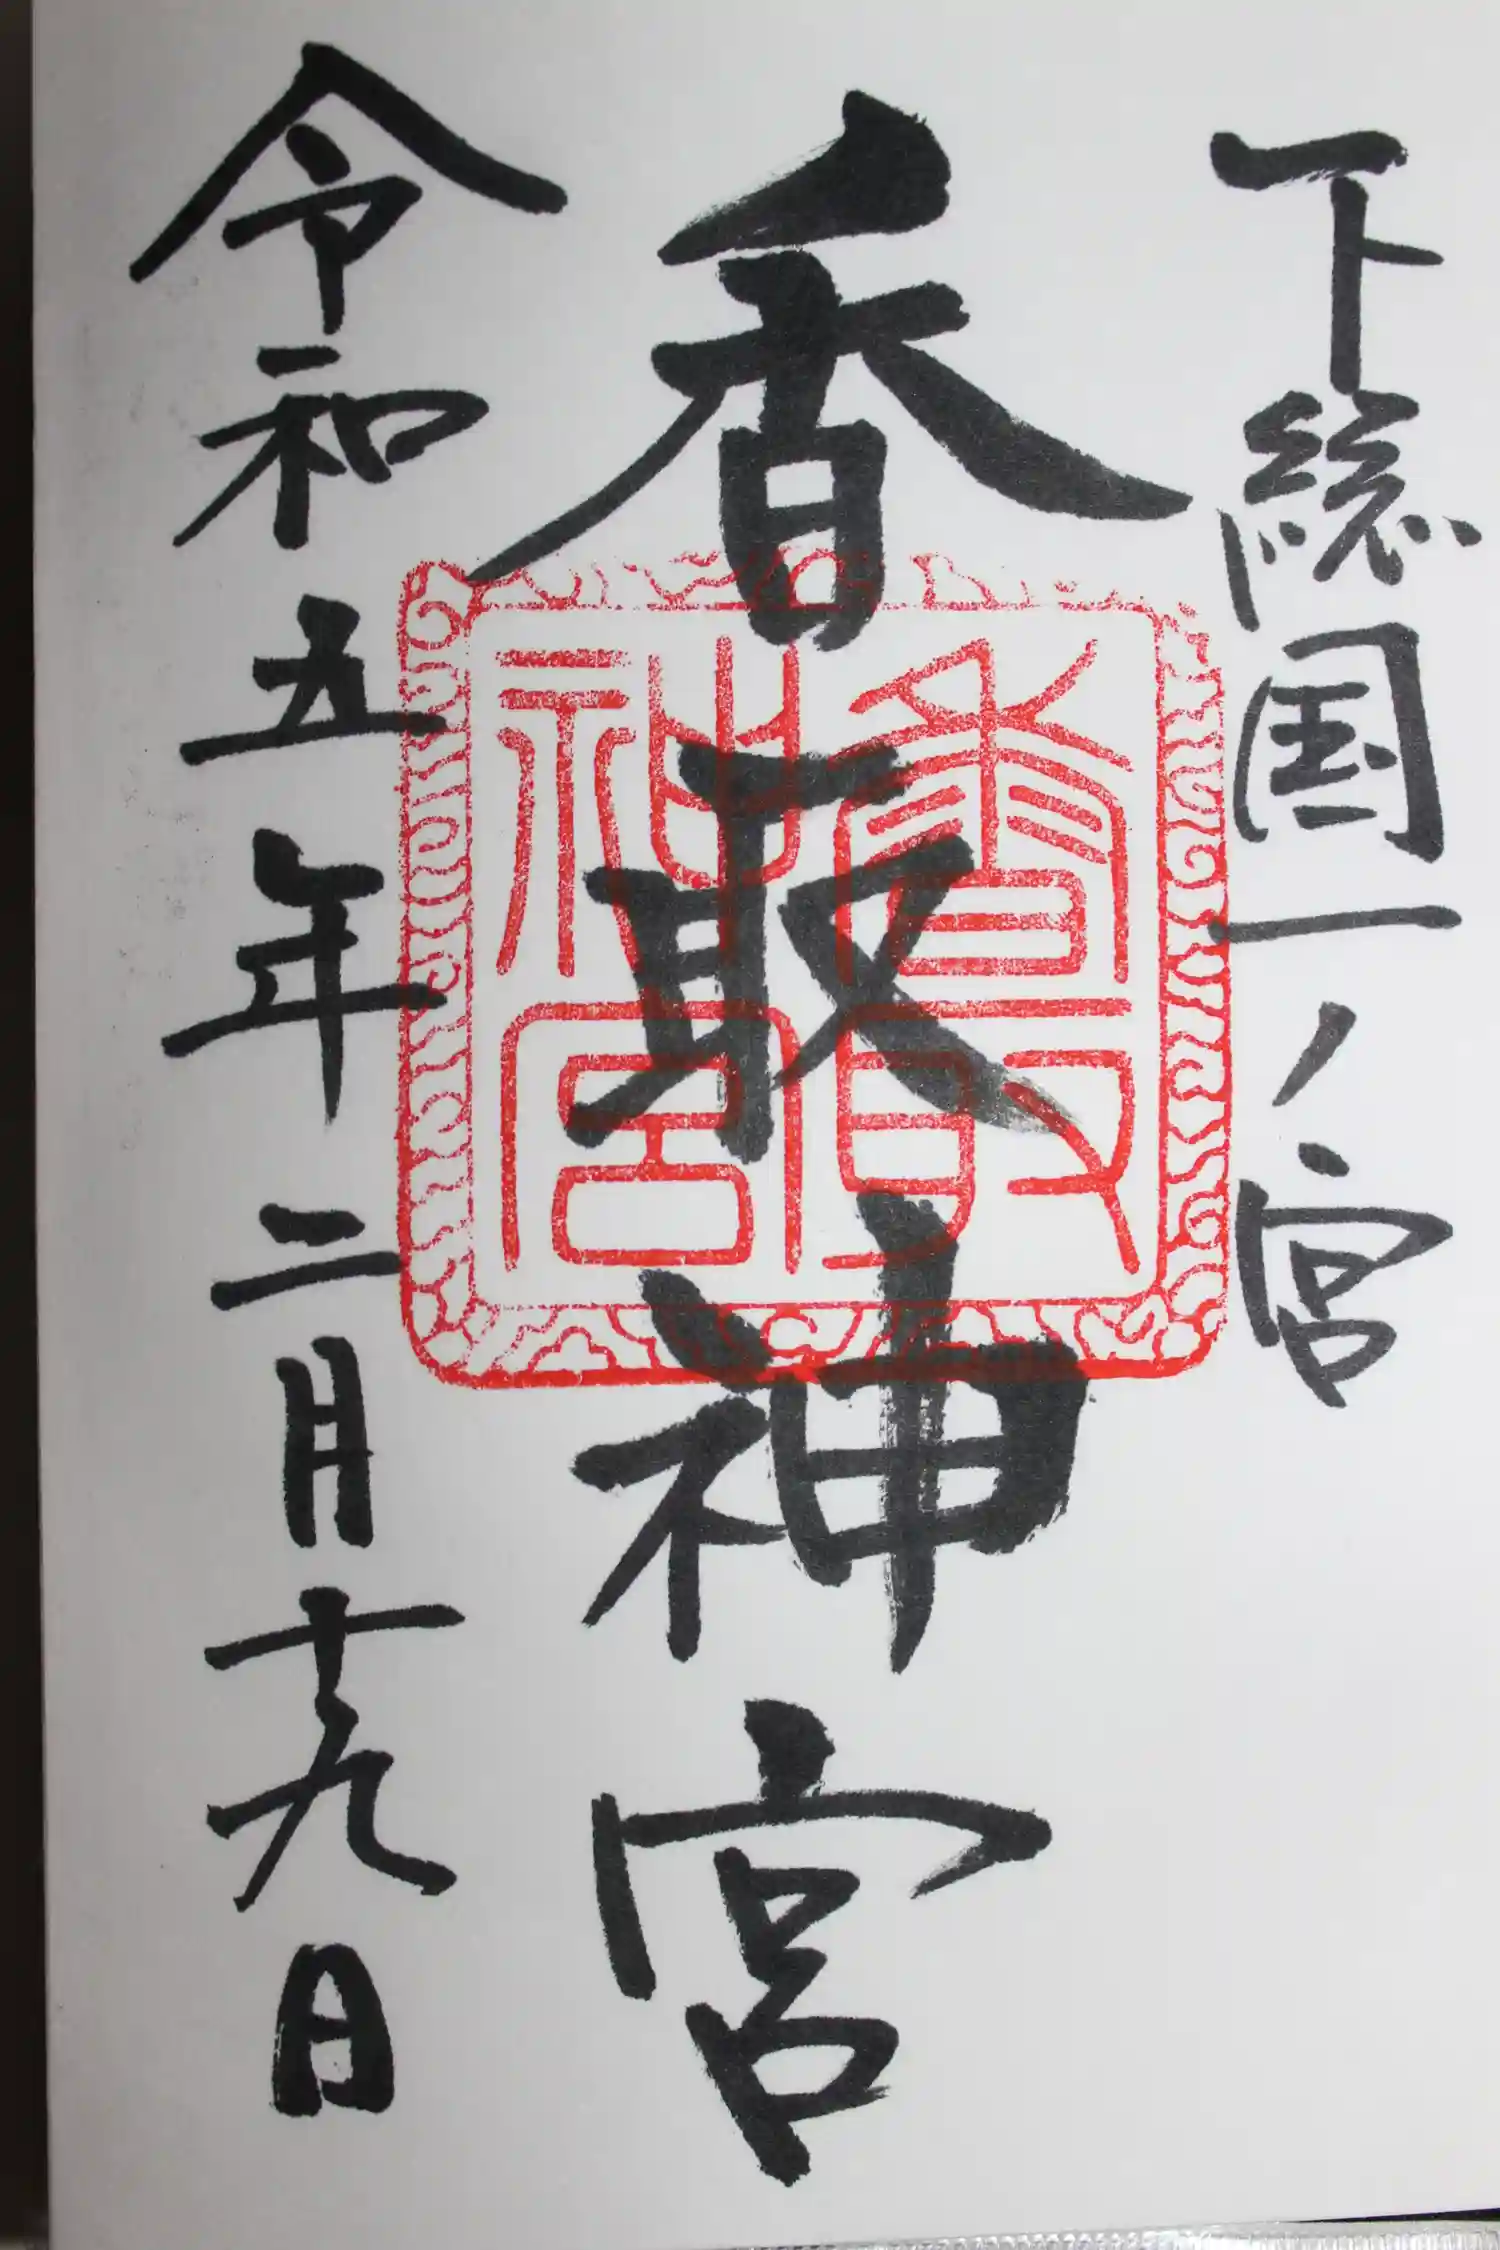 下総国一ノ宮
香取神宮
令和五年二月十九日
香取
神宮